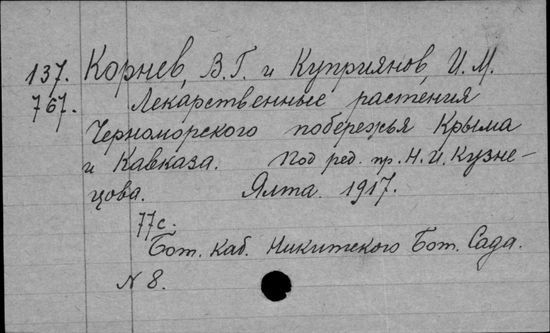 137. Корнев, В.Г. и Куприянов, И.М.
767. Лекарственные растения
Черноморского побережья Крыма
и Кавказа. Под ред. пр. Н.И. Кузне-
цова. Ялта. 1917.
77 с.
Бот. каб. Никитского Бот. Сада.
N 8.